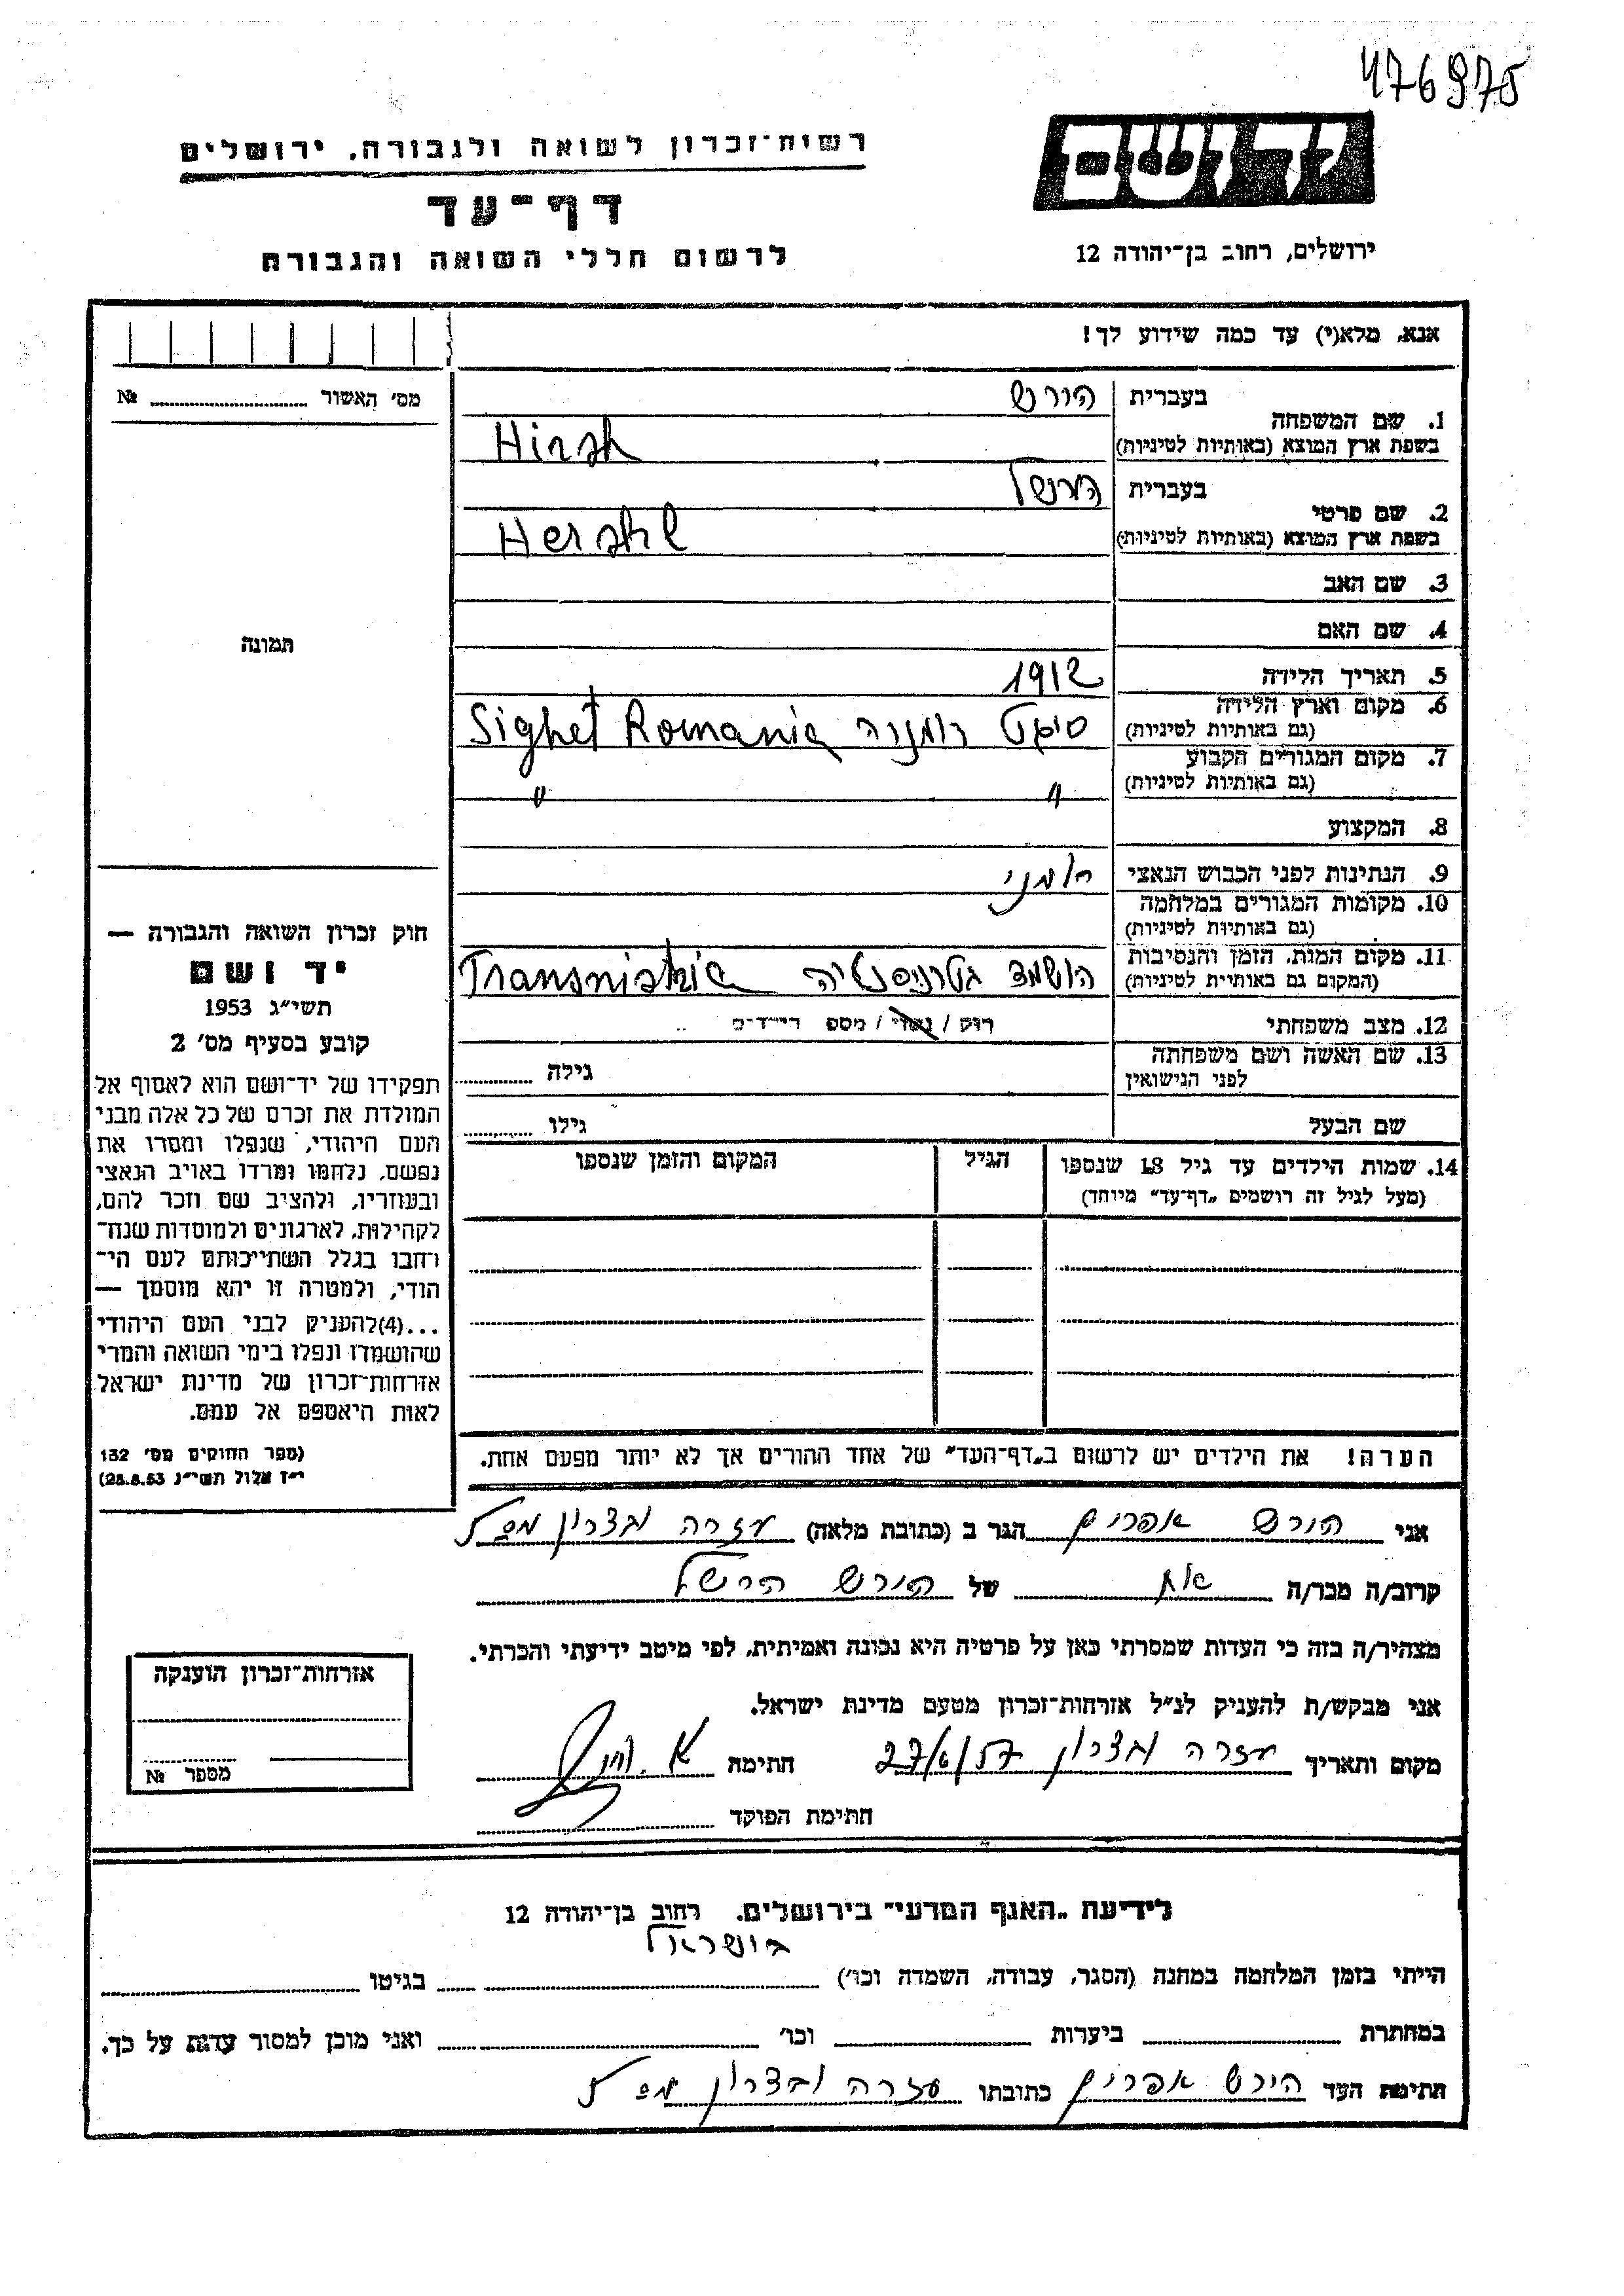 476975
רשות־זכרון לשואה ולגבורה, ירושלים
ידושם
דף־עד
לרשום חללי השואה והגבורה
ירושלים, רחוב בן־יהודה 12
אנא, מלא(י) עד כמה שידוע לך!
מס' האשור № 
1. שם המשפחה
בעברית הירש
בשפת ארץ המוצא (באותיות לטיניות) Hirsh
2. שם פרטי
בעברית הרשל
בשפת ארץ המוצא (באותיות לטיניות) Hershl
3. שם האב
4. שם האם
תמונה
5. תאריך הלידה 1912
6. מקום וארץ הלידה
(גם באותיות לטיניות) סיגט רומניה Sighet Romania
7. מקום המגורים הקבוע
(גם באותיות לטיניות) " "
8. המקצוע
9. הנתינות לפני הכבוש הנאצי רומני
10. מקומות המגורים במלחמה
(גם באותיות לטיניות)
11. מקום המות, הזמן והנסיבות
(המקום גם באותיות לטיניות) הושמד Transnistria
12. מצב משפחתי רוק / נשוי / מספ הילדים
13. שם האשה ושם משפחתה
לפני הנישואין גילה
שם הבעל גילו
14. שמות הילדים עד גיל 18 שנספו הגיל המקום והזמן שנספו
(מעל לגיל זה רושמים „דף־עד" מיוחד)
הערה! את הילדים יש לרשום ב„דף־העד" של אחד ההורים אך לא יותר מפעם אחת.
חוק זכרון השואה והגבורה —
יד ושם
תשי"ג 1953
קובע בסעיף מס' 2
תפקידו של יד־ושם הוא לאסוף אל
המולדת את זכרם של כל אלה מבני
העם היהודי, שנפלו ומסרו את
נפשם, נלחמו ומרדו באויב הנאצי
ובעוזריו, ולהציב שם וזכר להם,
לקהילות, לארגונים ולמוסדות שנח־
רחבו בגלל השתייכותם לעם הי־
הודי, ולמטרה זו יהא מוסמך —
...(4)להעניק לבני העם היהודי
שהושמדו ונפלו בימי השואה והמרי
אזרחות־זכרון של מדינת ישראל
לאות היאספם אל עמם.
(ספר החוקים מס' 132
י"ז אלול תשי"ג 28.8.53)
אני הירש אפרים הגר ב (כתובת מלאה) עזרה ובצרון
קרוב/ה מכר/ה אח של הירש הרשל
מצהיר/ה בזה כי העדות שמסרתי כאן על פרטיה היא נכונה ואמיתית, לפי מיטב ידיעתי והכרתי.
אני מבקש/ת להעניק לנ"ל אזרחות־זכרון מטעם מדינת ישראל.
מקום ותאריך עזרה ובצרון 27/6/57 חתימה
חתימת הפוקד
אזרחות־זכרון הוענקה
מספר №
לידיעת „האגף המדעי" בירושלים, רחוב בן־יהודה 12
בישראל
הייתי בזמן המלחמה במחנה (הסגר, עבודה, השמדה וכו') בגיטו
במחתרת ביערות וכו' ואני מוכן למסור עדות על כך.
חתימת העד הירש אפרים כתובתו עזרה ובצרון